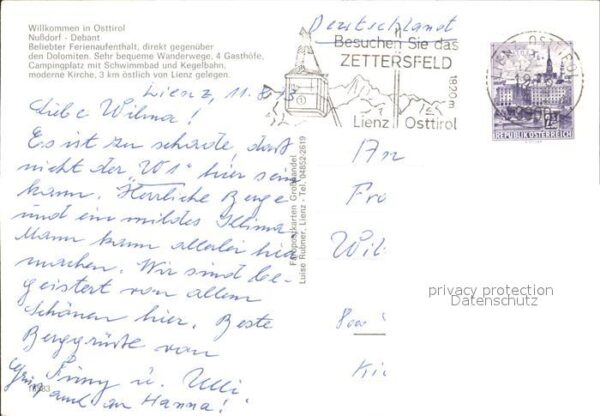 Willkommen in Osttirol
Nußdorf - Debant
Beliebter Ferienaufenthalt, direkt gegenüber
den Dolomiten. Sehr bequeme Wanderwege, 4 Gasthöfe,
Campingplatz mit Schwimmbad und Kegelbahn,
moderne Kirche, 3 km östlich von Lienz gelegen.
Lienz, 11.8.
Liebe Wilma!
Es ist zu schade daß
nicht der "W1" hier sein
kann. Herrliche Berge
und ein mildes Klima
Mann kann allerlei hier
machen. Wir sind be-
geistert von allem
Schönen hier. Beste
Berggrüße von
u. Ulli
Gruß auch an Hanna!
Farbpostkarten Großhandel
Luise Rußner, Lienz - Tel. 04852-2619
Deutschland
Besuchen Sie das
ZETTERSFELD
1820 m
Lienz Osttirol
REPUBLIK ÖSTERREICH
An
Fr
Wil
privacy protection
Datenschutz